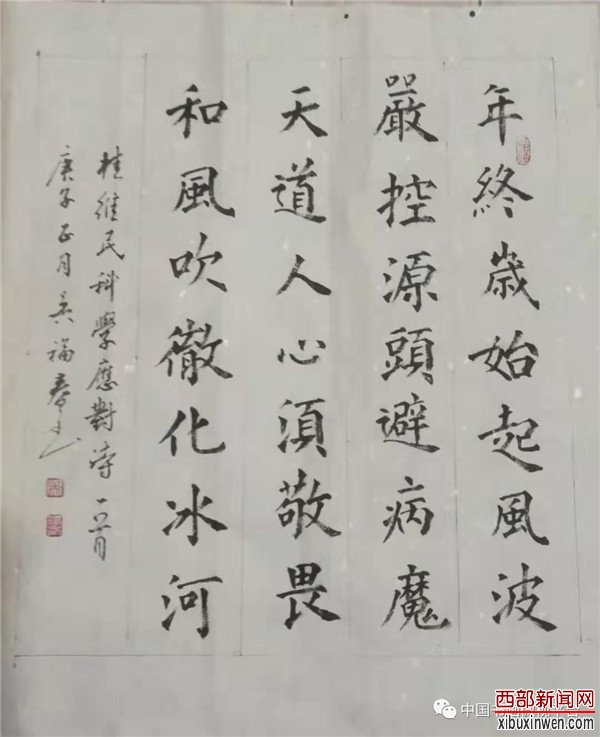 年終歲始起風波
嚴控源頭避病魔
天道人心須敬畏
和風吹徹化冰河
桂維民科學應對詩一首
庚子正月吳福春書
西部新闻网
xibuxinwen.com